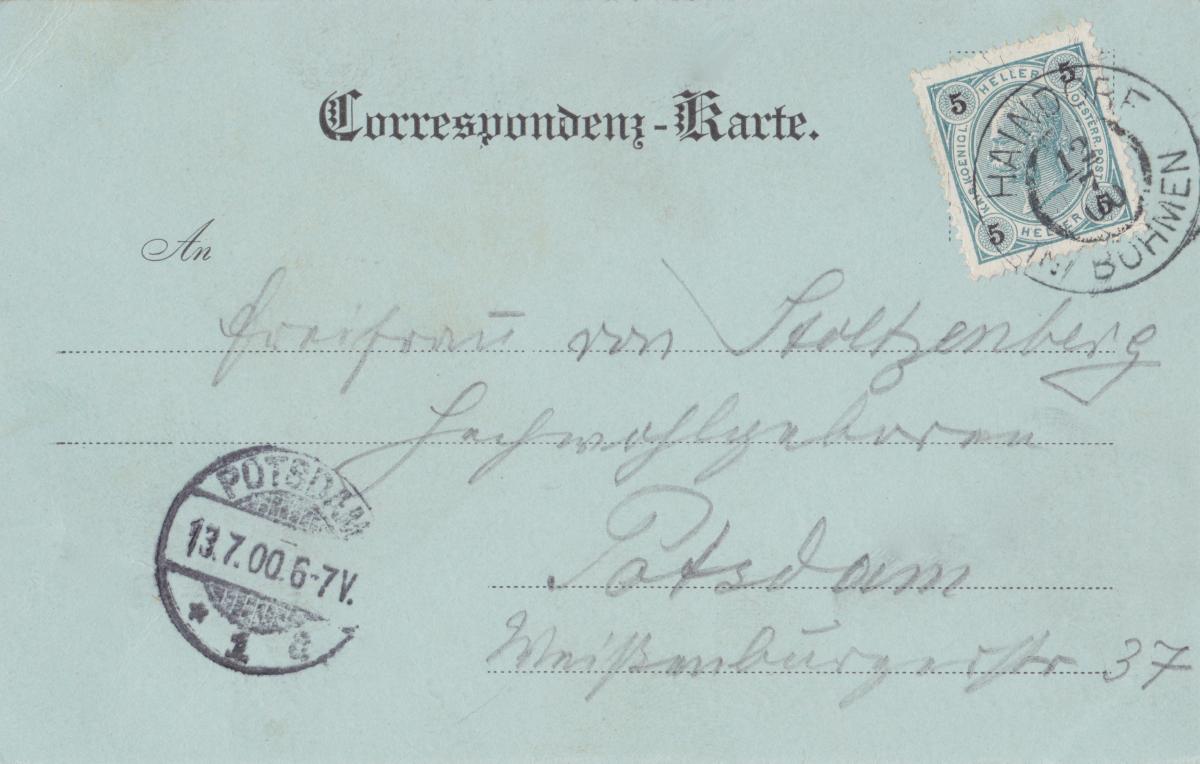 Correspondenz-Karte.
5 HELLER 5
KK.&KOENIGL. OESTERR.POST
5 HELLER 5
HAINDORF
12
00
IN BÖHMEN
An
Freifrau von Stoltzenberg
Hochwohlgeboren
POTSDAM
13.7.00.6-7V.
* 1 a
Potsdam
Weißenburgerstr 37